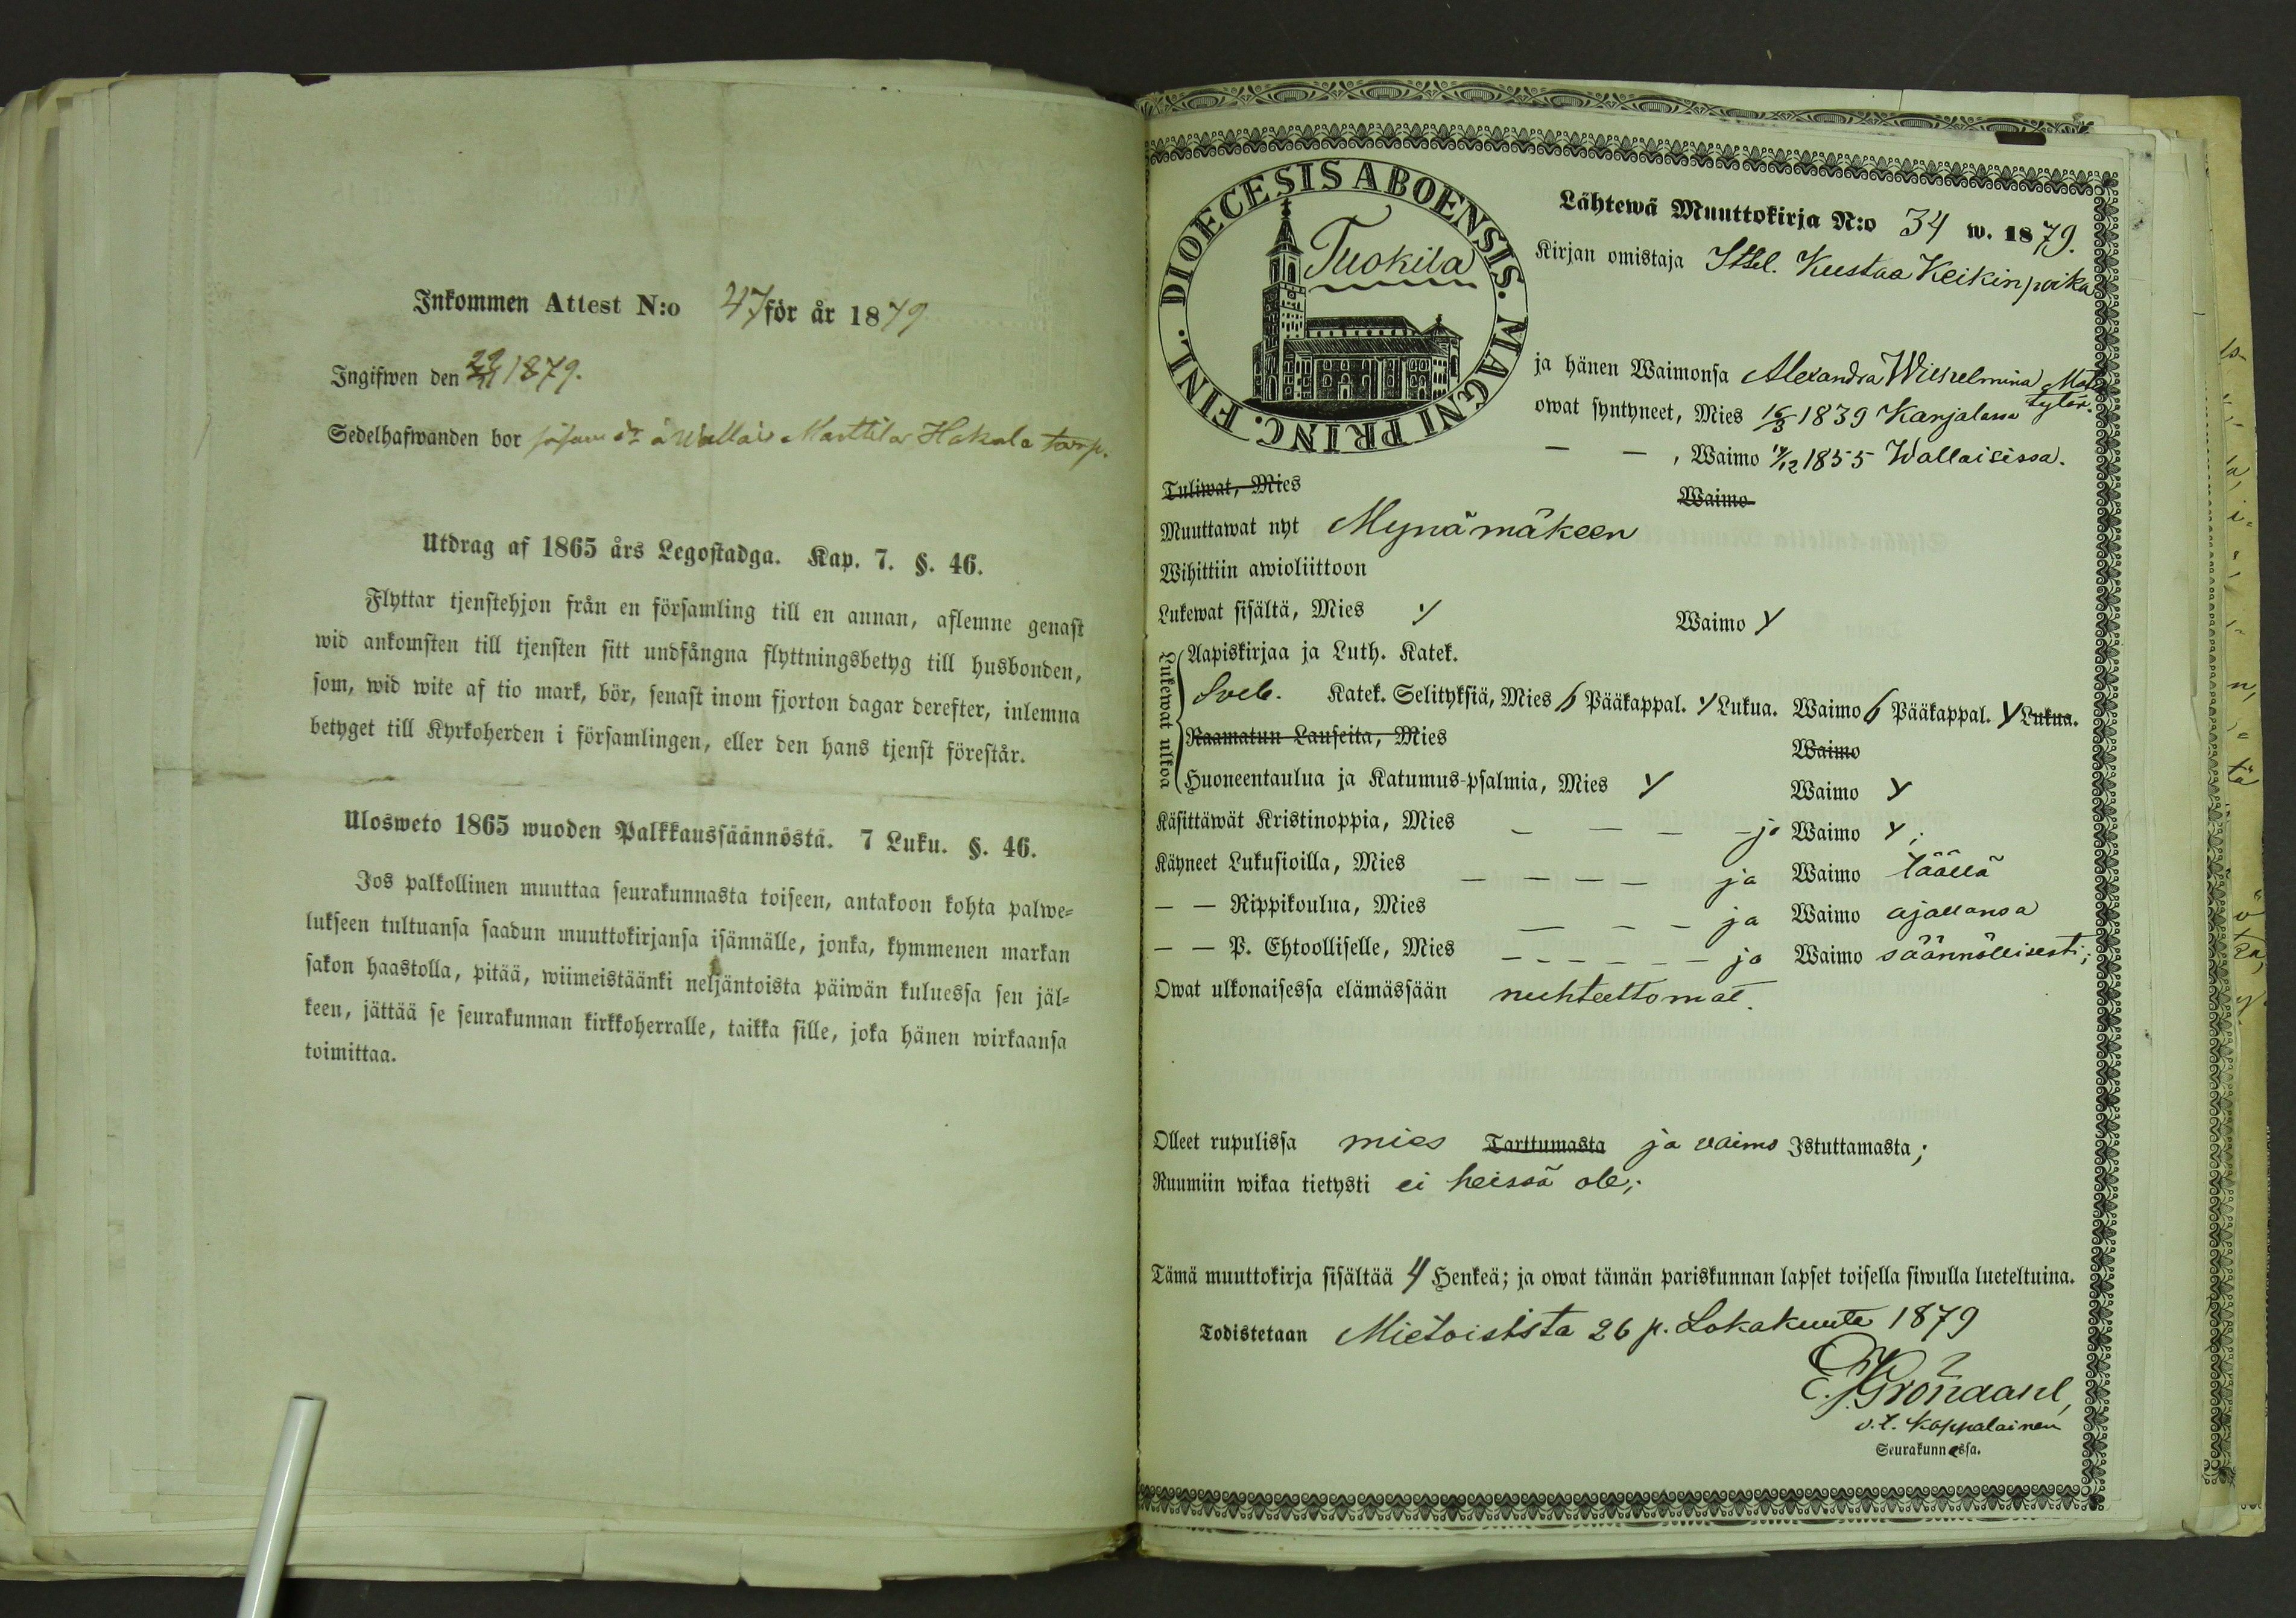 Inkommen Attest N:o 47 för år 1879
Ingifwen den 22/11 1879.
Sedelhafwanden bor Hakala torp.
Utdrag af 1865 års Legostadga. Kap. 7. §. 46.
Flyttar tjenstehjon från en församling till en annan, aflemne genast
wid ankomsten till tjensten sitt undfångna flyttningsbetyg till husbonden,
som, wid wite af tio mark, bör, senast inom fjorton dagar derefter, inlemna
betyget till Kyrkoherden i församlingen, eller den hans tjenst förestår.
Ulosweto 1865 wuoden Palkkaussäännöstä. 7 Luku. §. 46.
Jos palkollinen muuttaa seurakunnasta toiseen, antakoon kohta palwe=
lukseen tultuansa saadun muuttokirjansa isännälle, jonka, kymmenen markan
sakon haastolla, pitää, wiimeistäänki neljäntoista päiwän kuluessa sen jäl=
keen, jättää se seurakunnan kirkkoherralle, taikka sille, joka hänen wirkaansa
toimittaa.
DIOECESIS ABOENSIS. MAGNI PRINC. FINL.
Tuokila
Lähtewä Muuttokirja N:o 34 w. 1879.
Kirjan omistaja Itsel. Kustaa Keikinpoika
ja hänen Waimonsa Alexandra Wilhelmina Mat.
tytär.
owat syntyneet, Mies 16/3 1839 Karjalassa
— — , Waimo /12 1855 Wallaisissa.
Tuliwat, Mies Waimo
Muuttawat nyt Mynämäkeen
Wihittiin awioliittoon
Lukewat sisältä, Mies y Waimo y
Lukewat ulkoa
Aapiskirjaa ja Luth. Katek.
Sveb. Katek. Selityksiä, Mies 6 Pääkappal. y Lukua. Waimo 6 Pääkappal. y Lukua.
Raamatun Lauseita, Mies Waimo
Huoneentaulua ja Katumus-psalmia, Mies y Waimo y
Käsittäwät Kristinoppia, Mies — — — — ja Waimo y;
Käyneet Lukusioilla, Mies — — — — ja Waimo täällä
— — Rippikoulua, Mies — — — ja Waimo ajallansa
— — P. Ehtoolliselle, Mies — — — — — — ja Waimo säännöllisesti;
Owat ulkonaisessa elämässään nuhteettomat.
Olleet rupulissa mies Tarttumasta ja vaimo Istuttamasta;
Ruumiin wikaa tietysti ei heissä ole;
Tämä muuttokirja sisältää 4 Henkeä; ja owat tämän pariskunnan lapset toisella siwulla lueteltuina.
Todistetaan Mietoisista 26 p. Lokakuuta 1879
v.t. Kappalainen
Seurakunnassa.